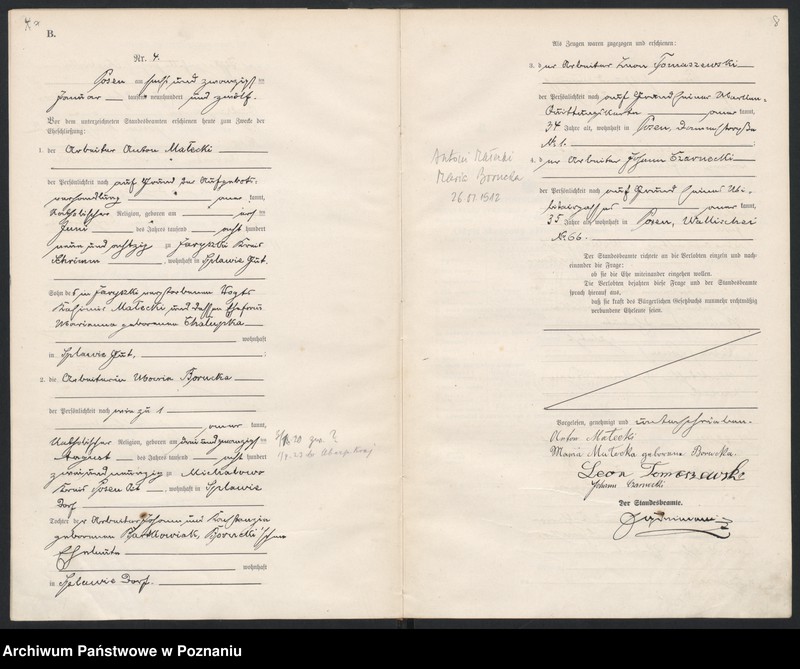 B.
Nr. 4.
Posen am sechs und zwanzigsten
Januar tausend neunhundert und zwölf.
Vor dem unterzeichneten Standesbeamten erschienen heute zum Zwecke der
Eheschließung:
1. der Arbeiter Anton Małecki
der Persönlichkeit nach auf Grund der Aufgebots-
verhandlung kannt,
katholischer Religion, geboren am
Juni des Jahres tausend acht hundert
neun und achtzig zu Jaryszki Kreis
Schrimm, wohnhaft in Splawie Gut.
Sohn des in Jaryszki verstorbenen Vogts
Kasimir Małecki und dessen Ehefrau
Marianna geborenen Chałupka
wohnhaft
in Splawie Gut,
2. die Arbeiterin Maria Borucka
der Persönlichkeit nach wie zu 1
kannt,
katholischer Religion, geboren am drei und zwanzigsten
August des Jahres tausend acht hundert
zwei und neunzig zu Michalowo
Kreis Posen Ost, wohnhaft in Splawie
Dorf
Tochter der Arbeiter Johann und Konstanzia
geborenen Bartkowiak, Borucki'schen
Eheleute
wohnhaft
in Splawie Dorf.
8
Als Zeugen waren zugezogen und erschienen:
3. der Arbeiter Leon Tomaszewski
der Persönlichkeit nach auf Grund seiner Marken-
Quittungskarte kannt,
34 Jahre alt, wohnhaft in Posen, Dammstraße
Nr. 1.
4. der Arbeiter Johann Czarnecki
der Persönlichkeit nach auf Grund seines Mi-
litärpasses kannt,
35 Jahre alt, wohnhaft in Posen, Wallischei
Nr. 66.
Antoni Małecki
Maria Borucka
26.01 1912
Der Standesbeamte richtete an die Verlobten einzeln und nach-
einander die Frage:
ob sie die Ehe miteinander eingehen wollen.
Die Verlobten bejahten diese Frage und der Standesbeamte
sprach hierauf aus,
daß sie kraft des Bürgerlichen Gesetzbuchs nunmehr rechtmäßig
verbundene Eheleute seien.
Vorgelesen, genehmigt und unterschrieben.
Anton Małecki
Maria Małecka geborene Borucka.
Leon Tomaszewski
Johann Czarnecki
Der Standesbeamte.
Archiwum Państwowe w Poznaniu